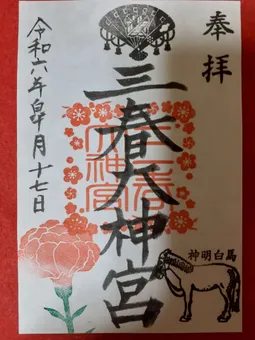 奉拝
三春大神宮
三春大神宮
神明白馬
令和六年皐月十七日